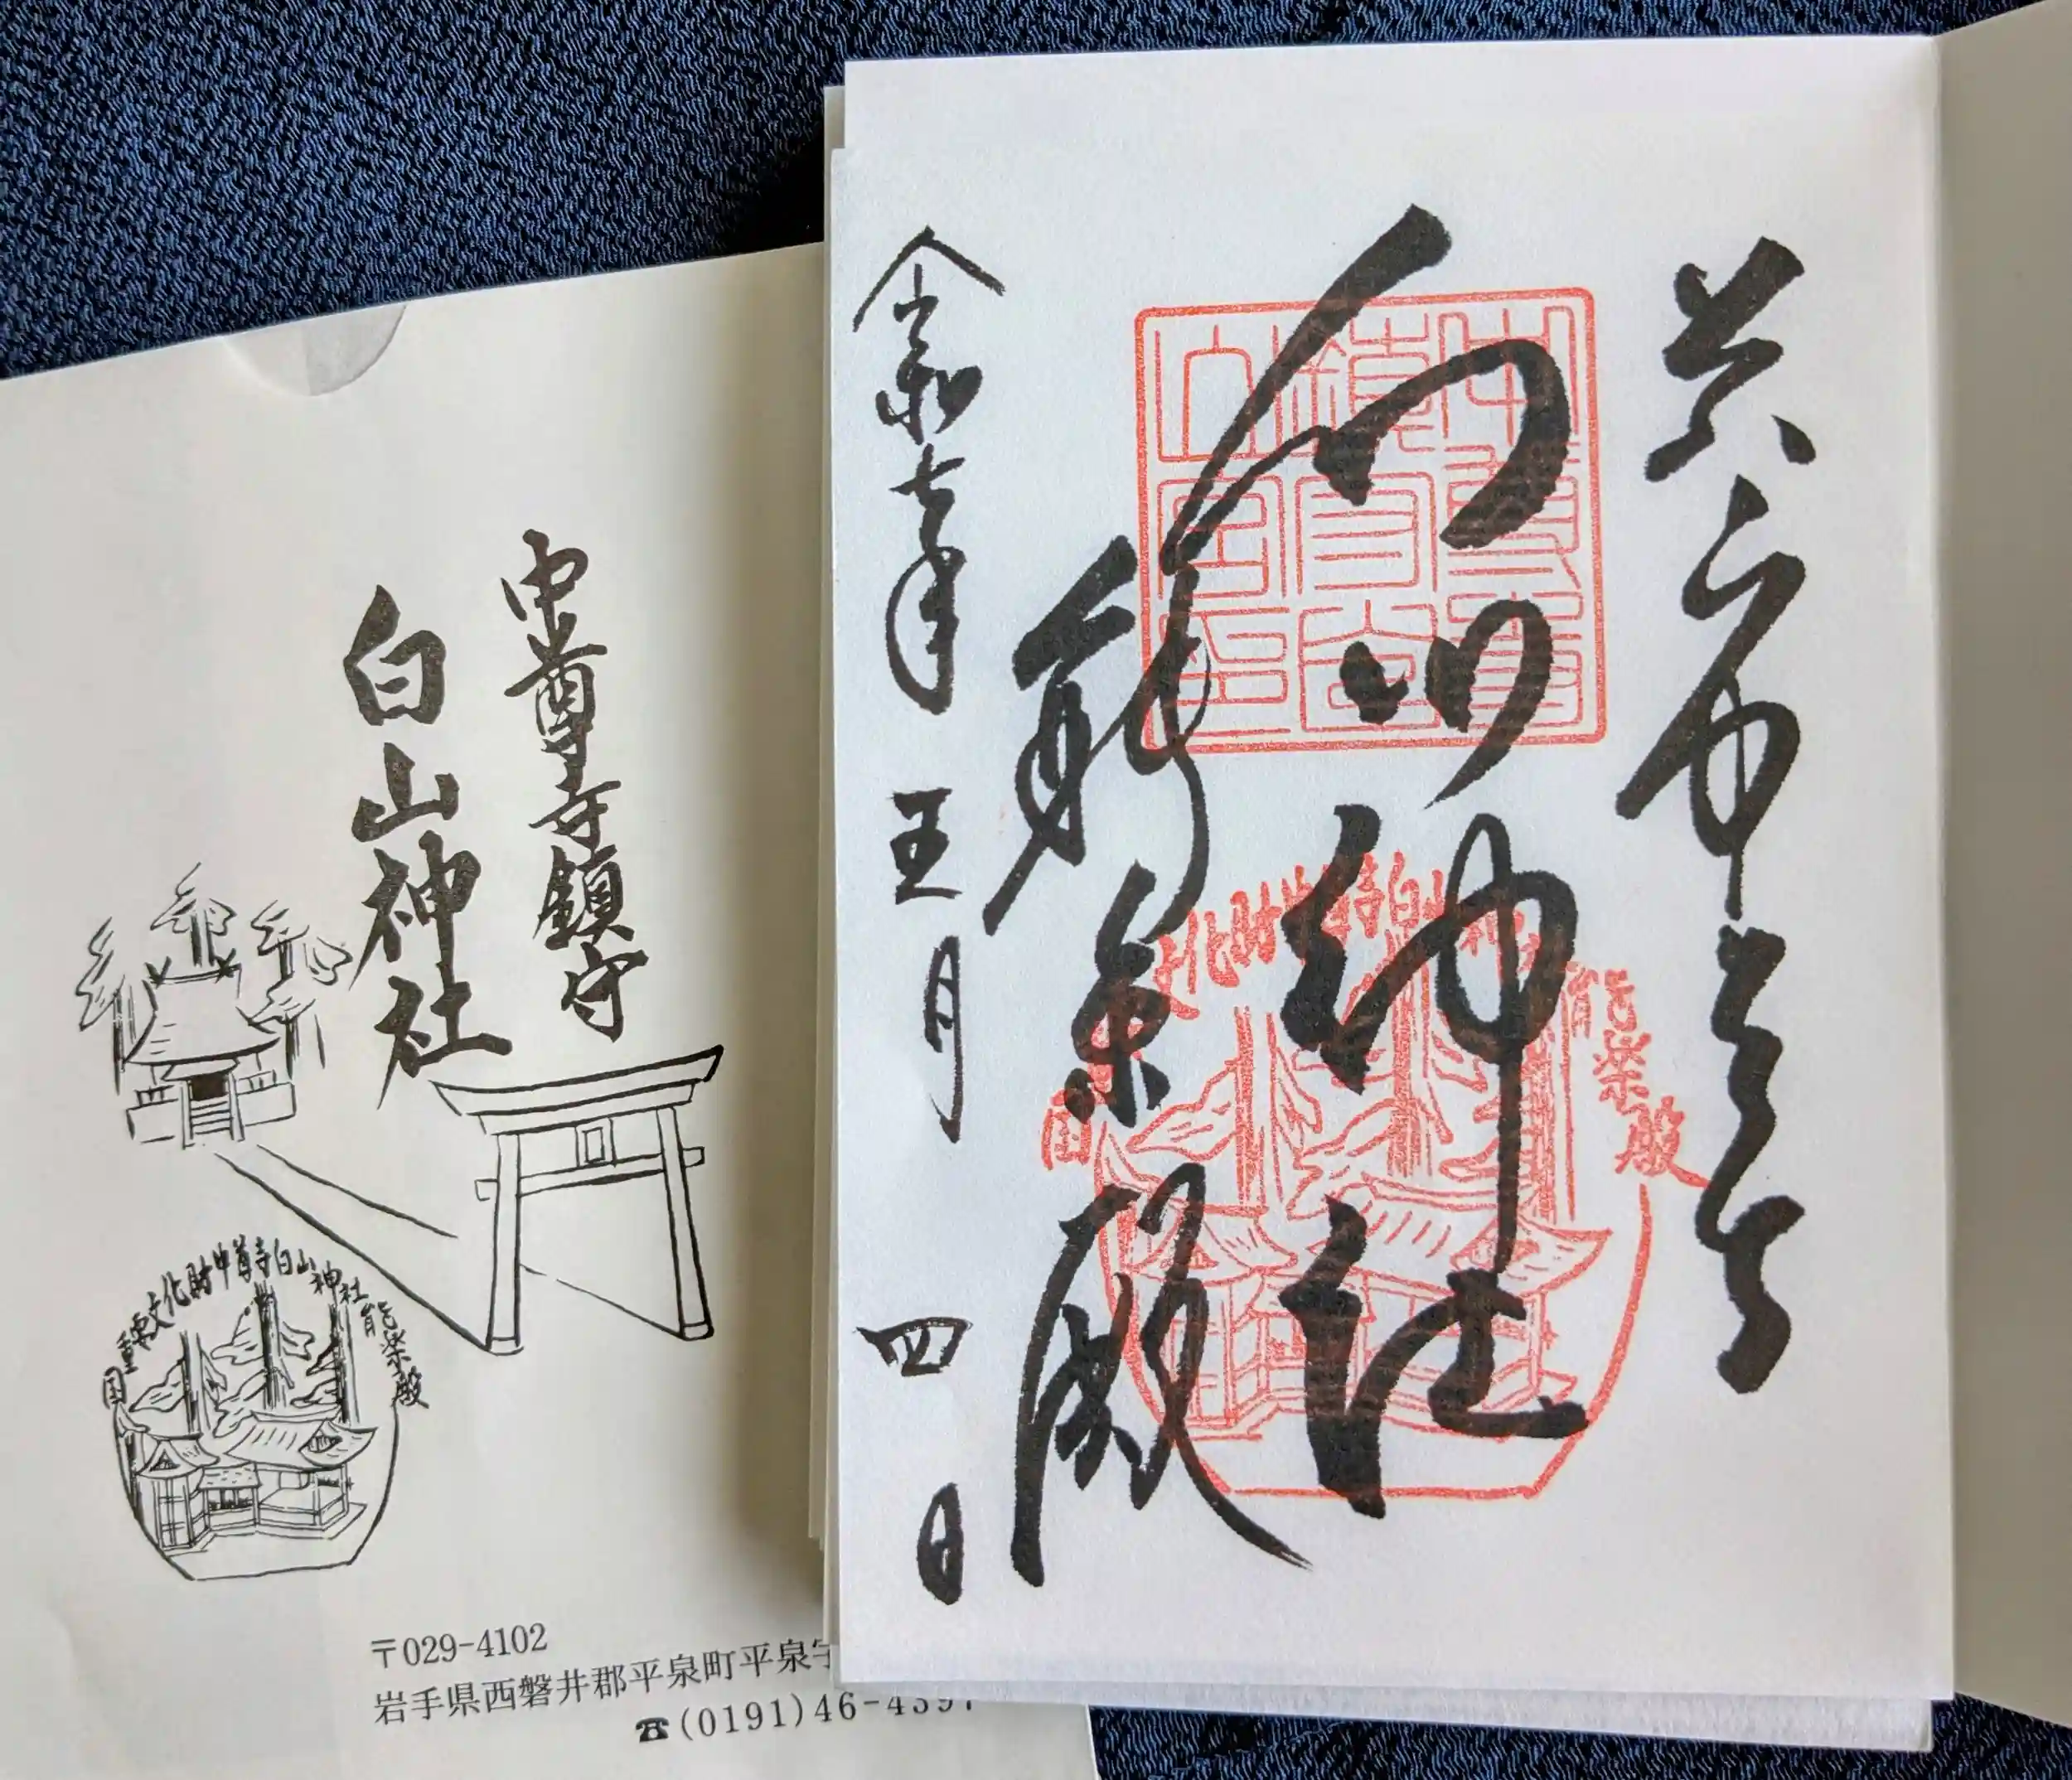 白山神社
能楽殿
令和七年 五月 四日
中尊寺
鎮守白
山宮印
文化財中尊寺白山神
能楽殿
中尊寺鎮守
白山神社
国重要文化財中尊寺白山神社能楽殿
〒029-4102
岩手県西磐井郡平泉町平泉字
☎(0191)46-4397